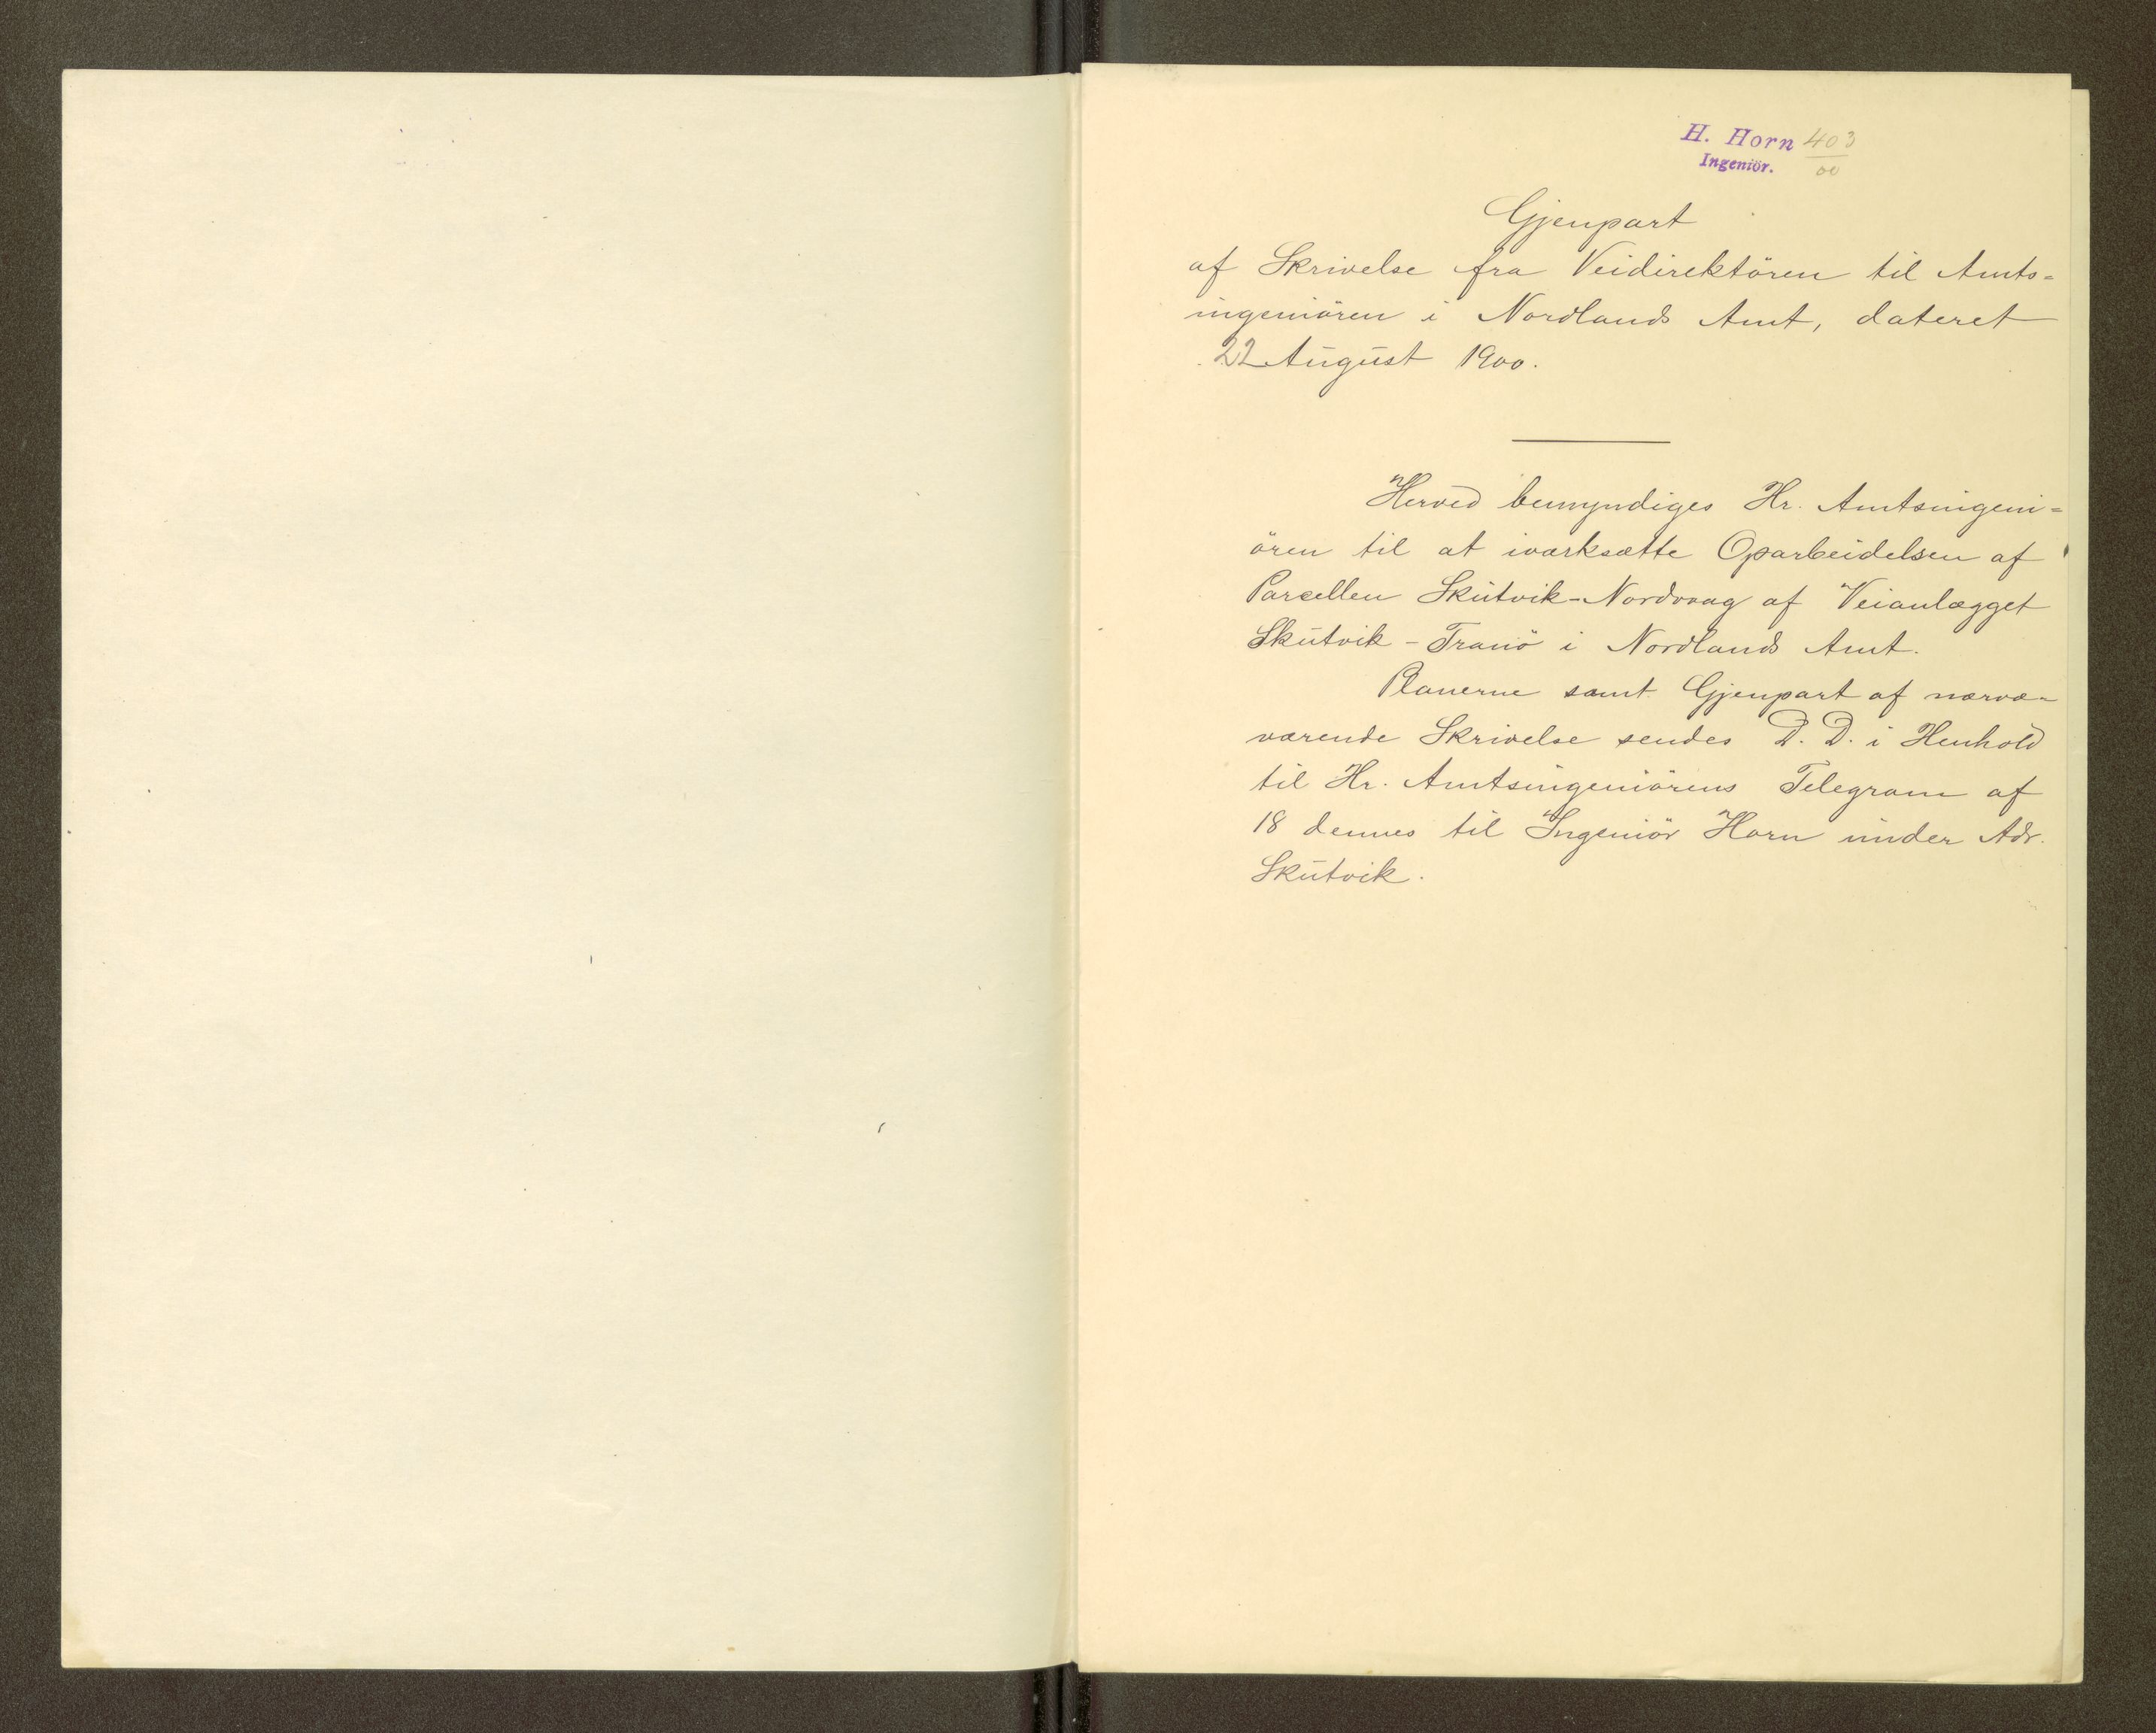 H. Horn 403
Ingeniör. 00
Gjenpart
af Skrivelse fra Veidirektören til Amts=
ingeniören i Nordlands Amt, dateret
22 August 1900.
"Herved bemyndiges Hr. Amtsingeni=
ören til at iværksætte Oparbeidelsen af
Parcellen Skutvik-Nordvaag af Veianlægget
Skutvik-Tranö i Nordlands Amt.
Planerne samt Gjenpart af nærvæ-
værende Skrivelse sendes D. D. i Henhold
til Hr. Amtsingeniörens Telegram af
18 dennes til Ingeniör Horn under Adr.
Skutvik.